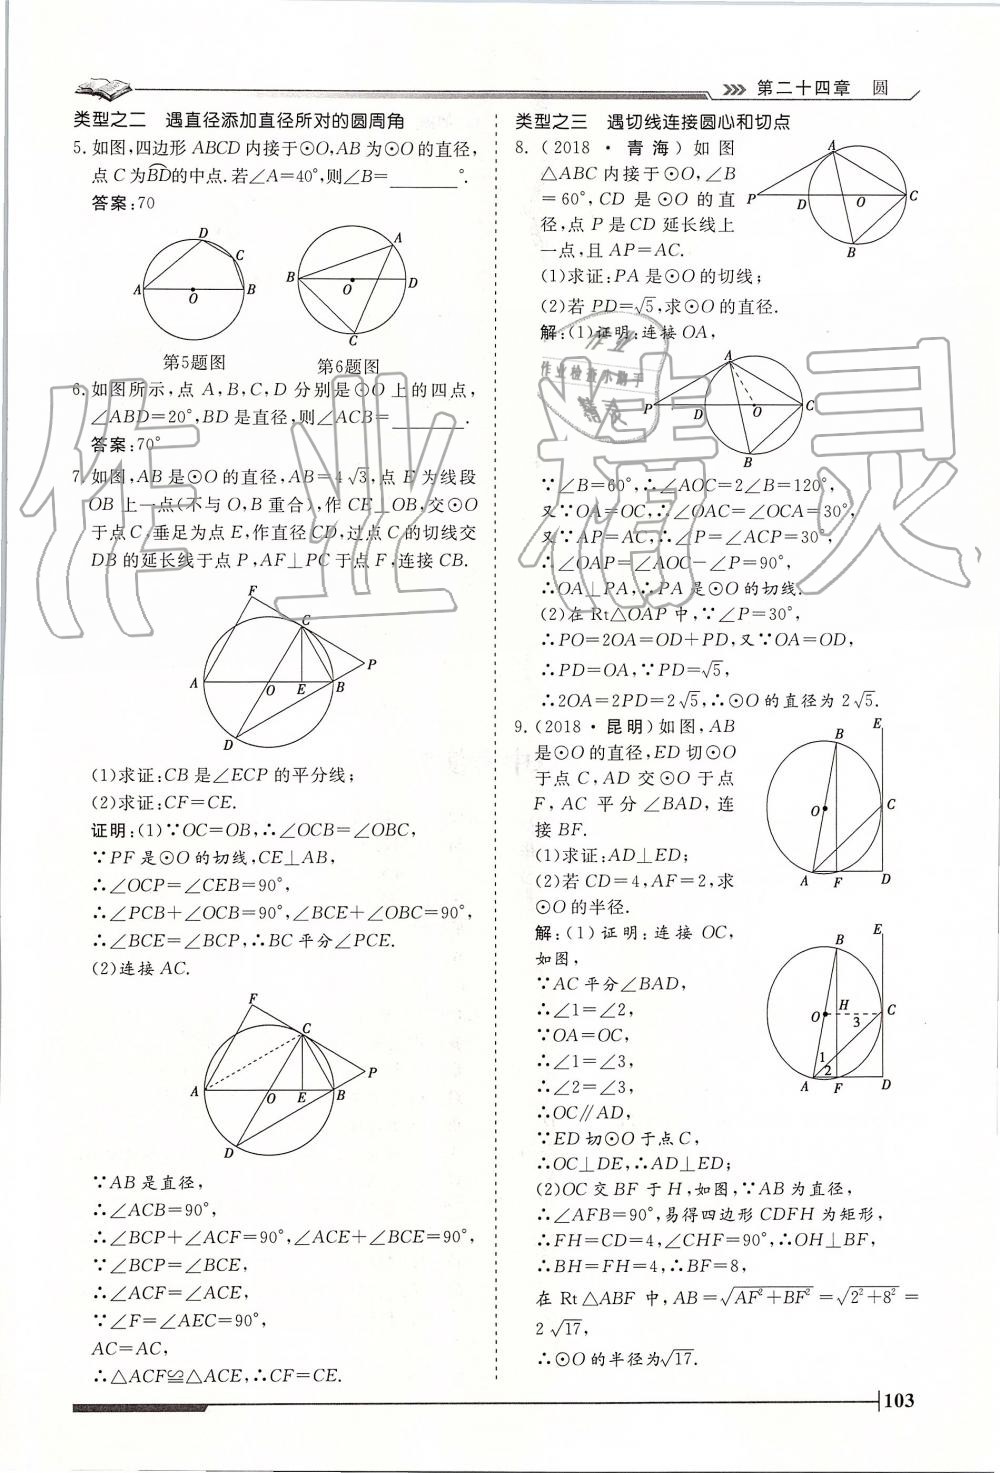 第二十四章 圆
类型之二 遇直径添加直径所对的圆周角
5. 如图,四边形ABCD内接于⊙O,AB为⊙O的直径,
点C为BD的中点.若∠A=40°,则∠B=______°.
答案:70
D
C
A
O
B
第5题图
A
B
O
D
C
第6题图
6. 如图所示,点A,B,C,D分别是⊙O上的四点,
∠ABD=20°,BD是直径,则∠ACB=______.
答案:70°
7. 如图,AB是⊙O的直径,AB=4√3,点E为线段
OB上一点(不与O,B重合),作CE⊥OB,交⊙O
于点C,垂足为点E,作直径CD,过点C的切线交
DB的延长线于点P,AF⊥PC于点F,连接CB.
F
C
P
A
O
E
B
D
(1)求证:CB是∠ECP的平分线;
(2)求证:CF=CE.
证明:(1)∵OC=OB,∴∠OCB=∠OBC,
∵PF是⊙O的切线,CE⊥AB,
∴∠OCP=∠CEB=90°,
∴∠PCB+∠OCB=90°,∠BCE+∠OBC=90°,
∴∠BCE=∠BCP,∴BC平分∠PCE.
(2)连接AC.
F
C
P
A
O
E
B
D
∵AB是直径,
∴∠ACB=90°,
∴∠BCP+∠ACF=90°,∠ACE+∠BCE=90°,
∵∠BCP=∠BCE,
∴∠ACF=∠ACE,
∵∠F=∠AEC=90°,
AC=AC,
∴△ACF≌△ACE,∴CF=CE.
类型之三 遇切线连接圆心和切点
8. (2018·青海)如图
△ABC内接于⊙O,∠B
=60°,CD是⊙O的直
径,点P是CD延长线上
一点,且AP=AC.
A
P
D
O
C
B
(1)求证:PA是⊙O的切线;
(2)若PD=√5,求⊙O的直径.
解:(1)证明:连接OA,
A
P
D
O
C
B
∵∠B=60°,∴∠AOC=2∠B=120°,
又∵OA=OC,∴∠OAC=∠OCA=30°,
又∵AP=AC,∴∠P=∠ACP=30°,
∴∠OAP=∠AOC-∠P=90°,
∴OA⊥PA,∴PA是⊙O的切线.
(2)在Rt△OAP中,∵∠P=30°,
∴PO=2OA=OD+PD,又∵OA=OD,
∴PD=OA,∵PD=√5,
∴2OA=2PD=2√5,∴⊙O的直径为2√5.
9. (2018·昆明)如图,AB
是⊙O的直径,ED切⊙O
于点C,AD交⊙O于点
F,AC平分∠BAD,连
接BF.
(1)求证:AD⊥ED;
(2)若CD=4,AF=2,求
⊙O的半径.
E
B
O
C
A
F
D
解:(1)证明:连接OC,
如图,
∵AC平分∠BAD,
∴∠1=∠2,
∵OA=OC,
∴∠1=∠3,
∴∠2=∠3,
∴OC∥AD,
∵ED切⊙O于点C,
∴OC⊥DE,∴AD⊥ED;
E
B
H
O
C
3
1
2
A
F
D
(2)OC交BF于H,如图,∵AB为直径,
∴∠AFB=90°,易得四边形CDFH为矩形,
∴FH=CD=4,∠CHF=90°,∴OH⊥BF,
∴BH=FH=4,∴BF=8,
在Rt△ABF中,AB=√(AF²+BF²)=√(2²+8²)=
2√17,
∴⊙O的半径为√17.
103
作业精灵
作业
作业检查小助手
精灵